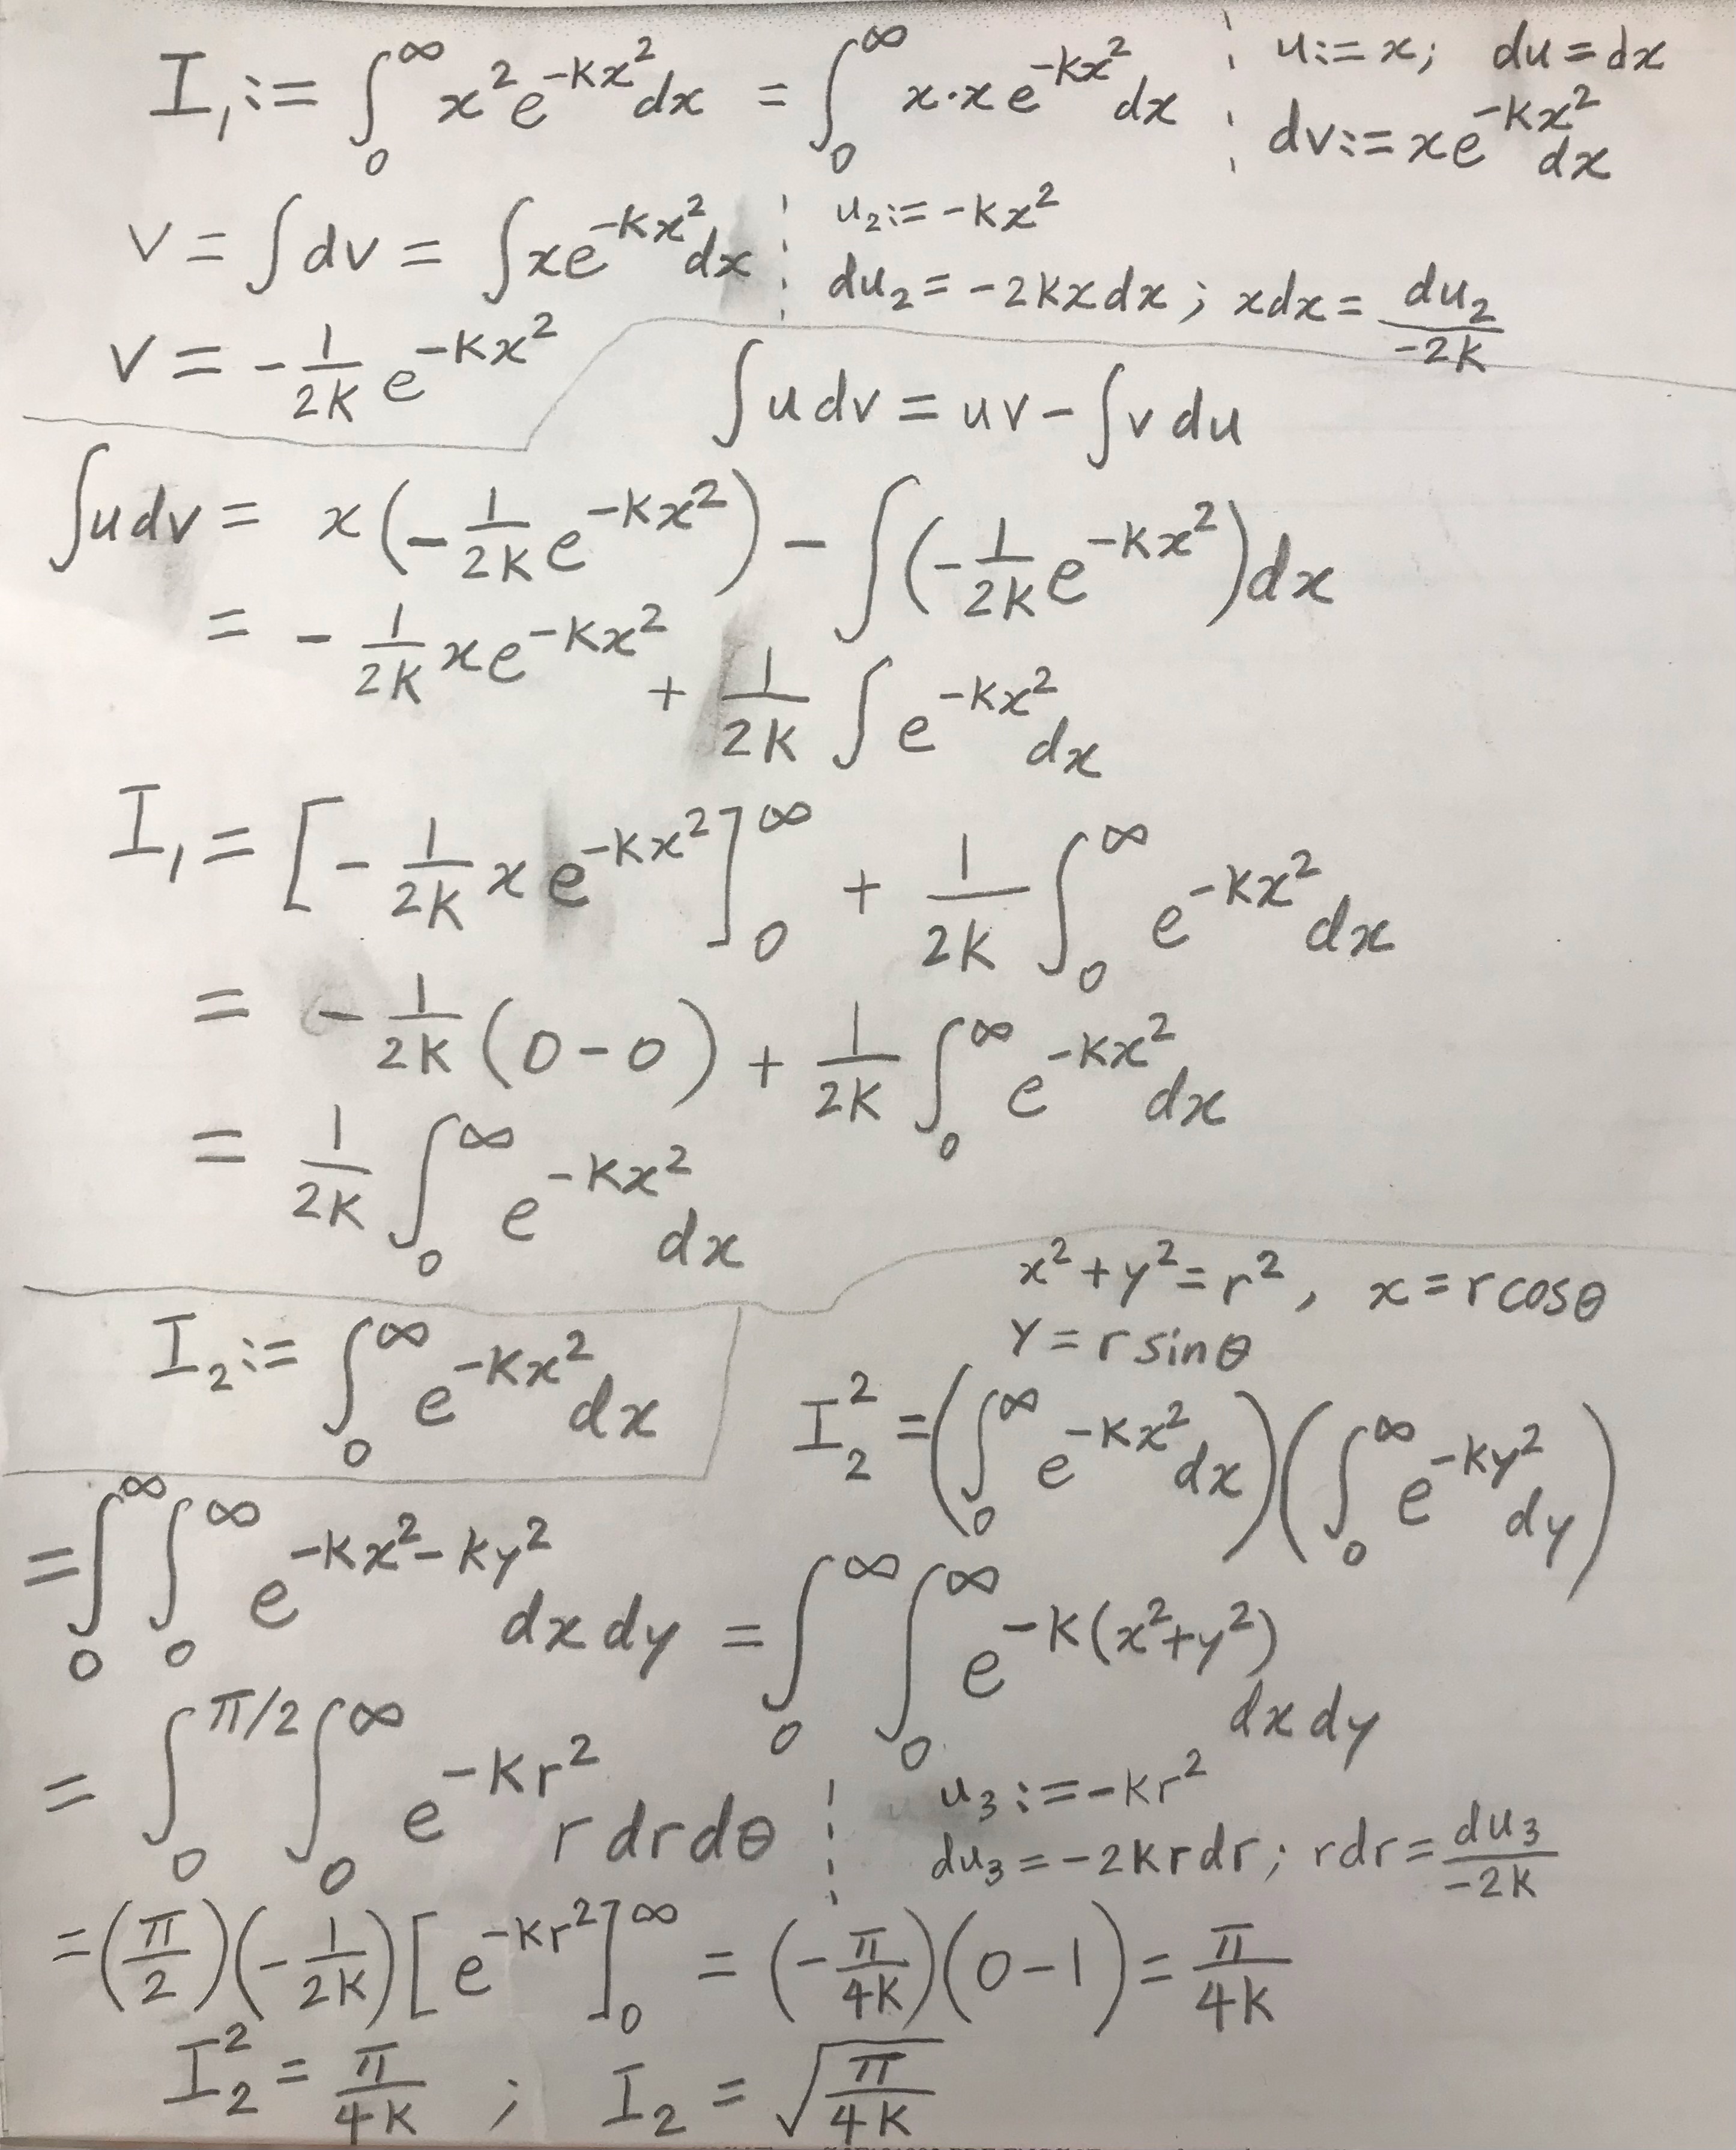 I₁ := ∫₀^∞ x²e^(-kx²) dx = ∫₀^∞ x·x e^(-kx²) dx ¦ u := x; du = dx
dv := xe^(-kx²) dx
v = ∫dv = ∫xe^(-kx²) dx ¦ u₂ := -kx²
du₂ = -2kx dx; xdx = du₂/(-2k)
v = -1/(2k) e^(-kx²)
∫u dv = uv - ∫v du
∫u dv = x(-1/(2k) e^(-kx²)) - ∫(-1/(2k) e^(-kx²)) dx
= -1/(2k) xe^(-kx²) + 1/(2k) ∫ e^(-kx²) dx
I₁ = [-1/(2k) x e^(-kx²)]₀^∞ + 1/(2k) ∫₀^∞ e^(-kx²) dx
= -1/(2k) (0-0) + 1/(2k) ∫₀^∞ e^(-kx²) dx
= 1/(2k) ∫₀^∞ e^(-kx²) dx
x² + y² = r², x = r cosθ
y = r sinθ
I₂ := ∫₀^∞ e^(-kx²) dx
I₂² = (∫₀^∞ e^(-kx²) dx)(∫₀^∞ e^(-ky²) dy)
= ∫₀^∞ ∫₀^∞ e^(-kx²-ky²) dx dy = ∫₀^∞ ∫₀^∞ e^(-k(x²+y²)) dx dy
= ∫₀^(π/2) ∫₀^∞ e^(-kr²) r dr dθ ¦ u₃ := -kr²
du₃ = -2kr dr; rdr = du₃/(-2k)
= (π/2)(-1/(2k))[e^(-kr²)]₀^∞ = (-π/(4k))(0-1) = π/(4k)
I₂² = π/(4k) ; I₂ = √(π/(4k))